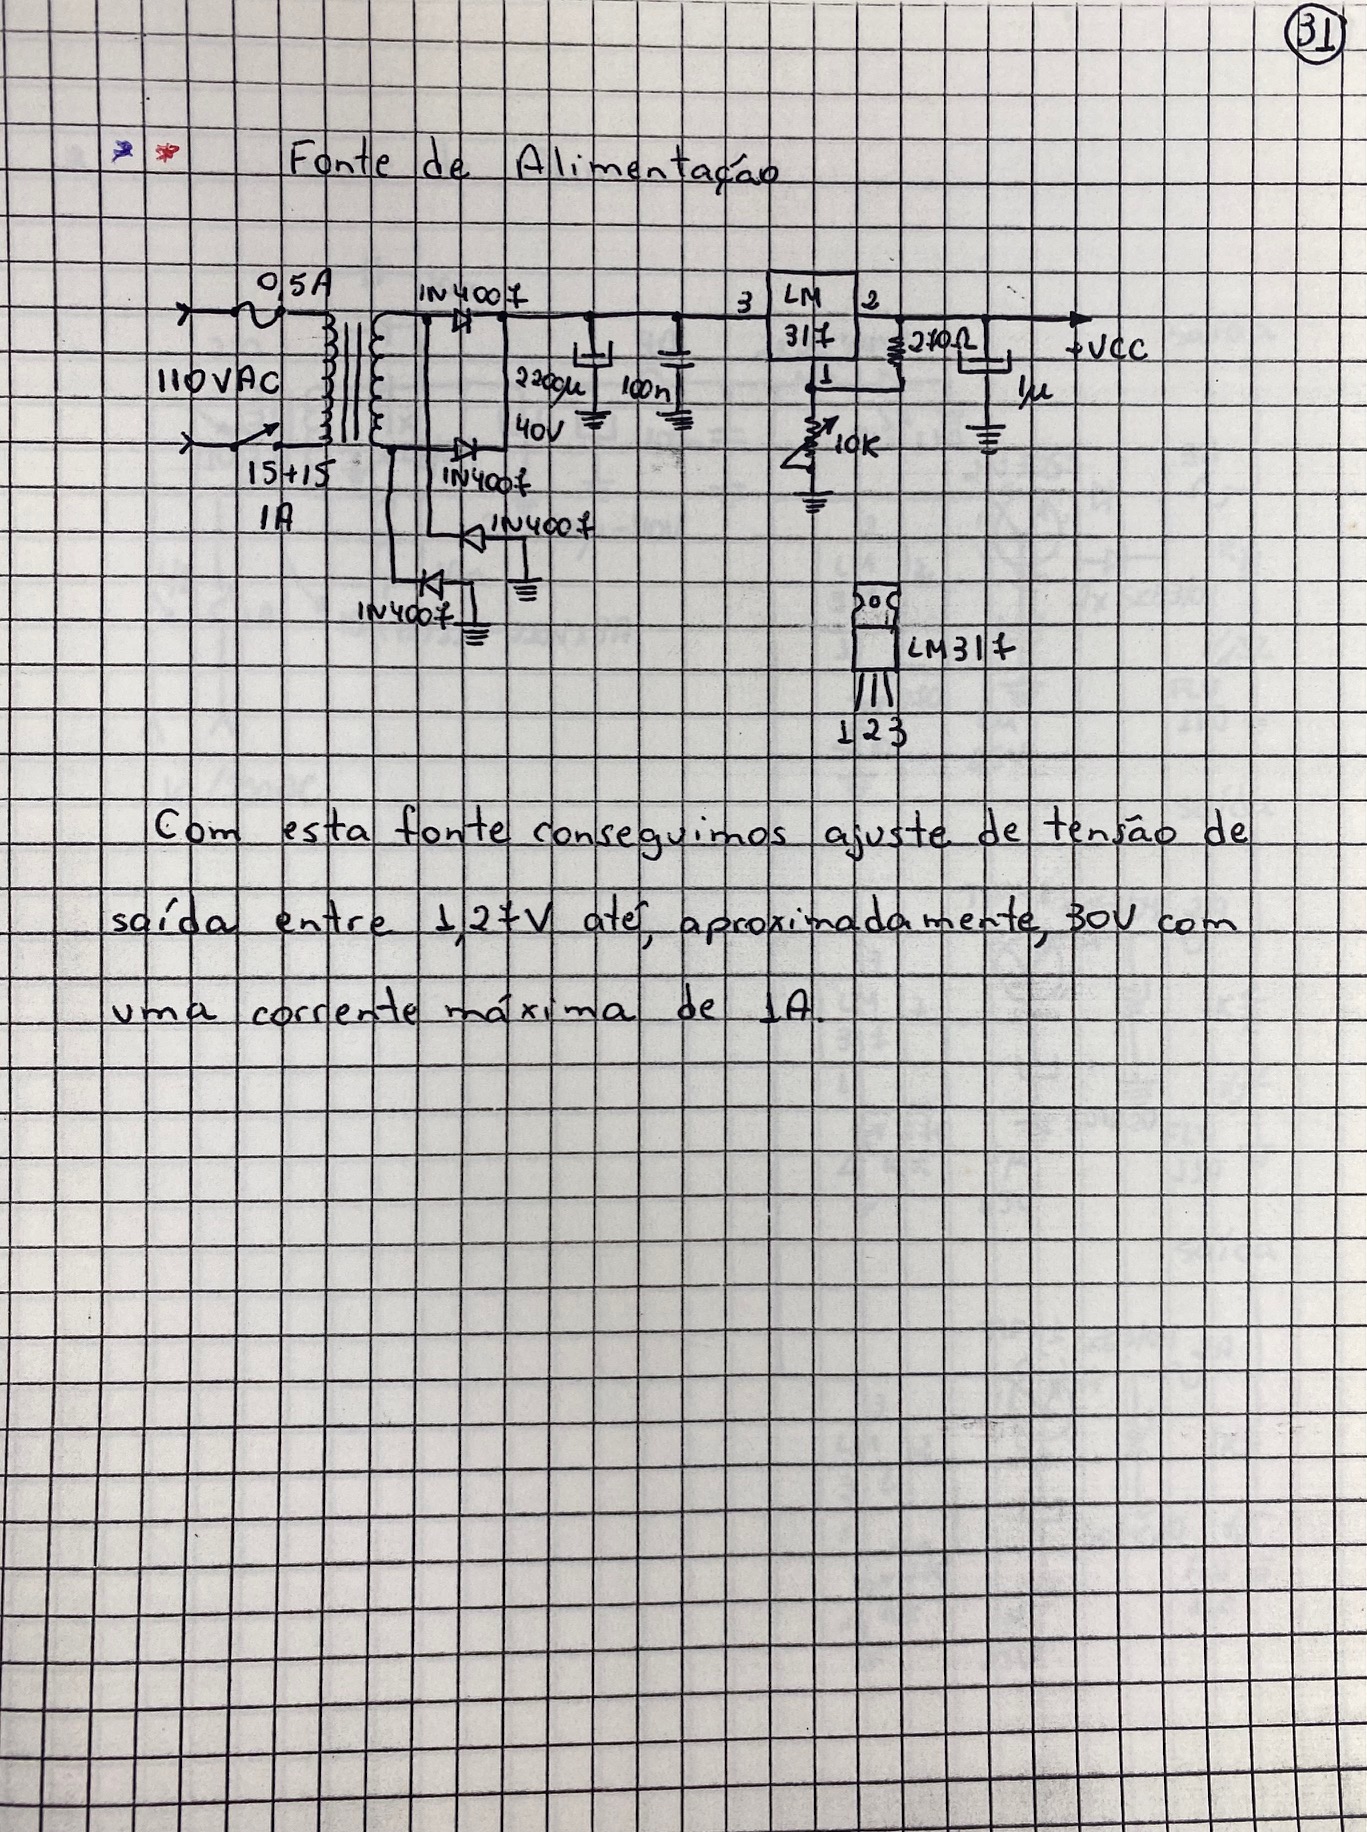 31
Fonte de Alimentação
0,5A
1N4007
3 LM 2
317
270Ω
+VCC
110VAC
2200µ
100n
1
1µ
40V
10K
15+15
1N4007
1A
1N4007
1N4007
LM317
1 2 3
Com esta fonte conseguimos ajuste de tensão de
saída entre 1,27V até, aproximadamente, 30V com
uma corrente máxima de 1A.